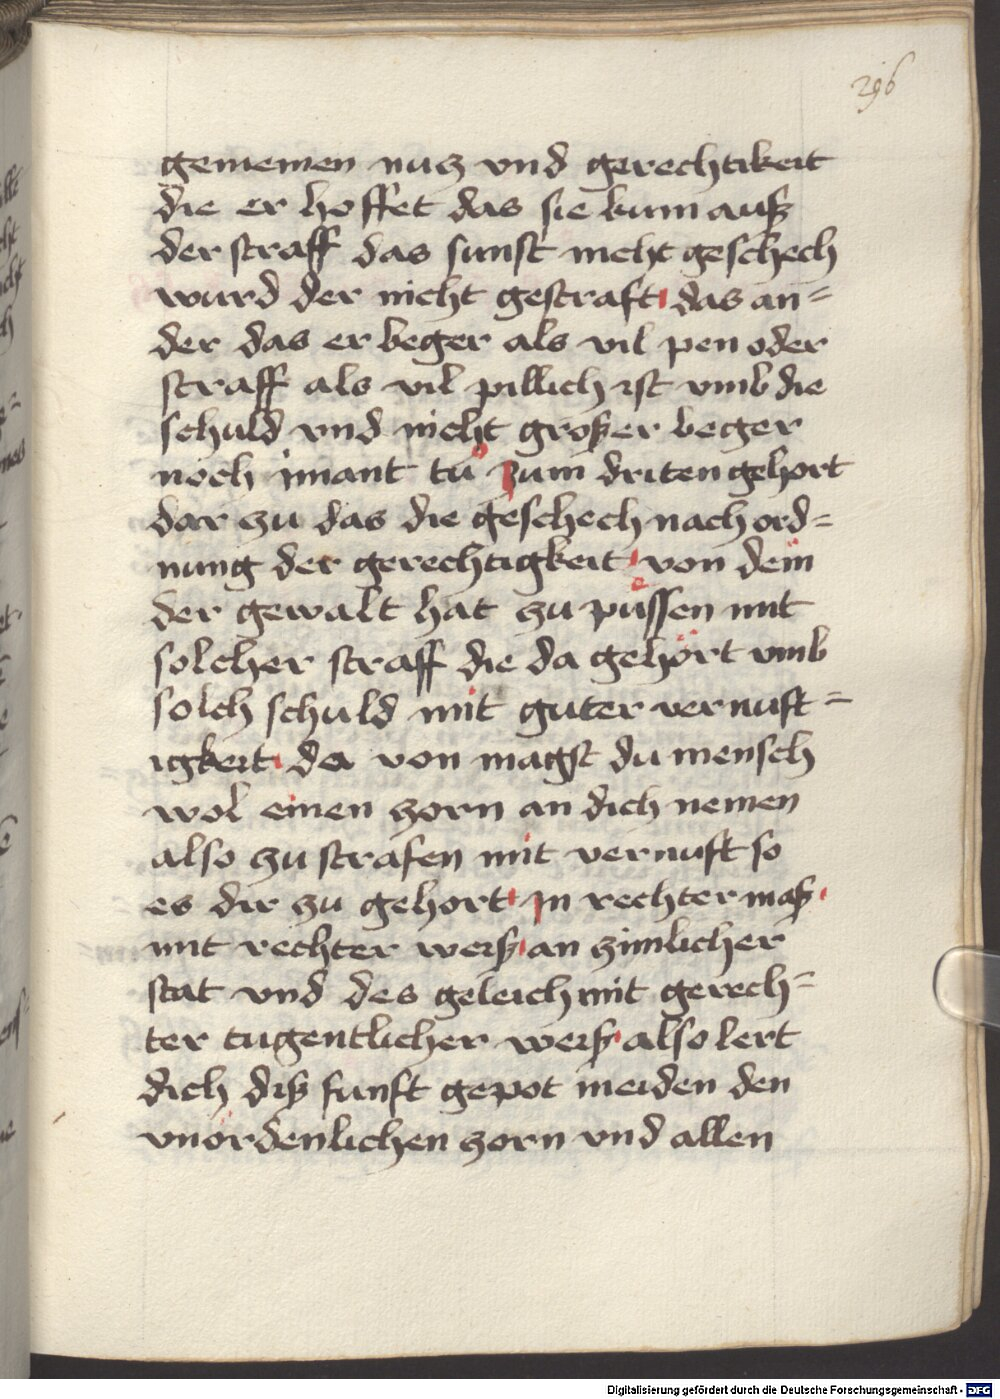 296
gemeinen nucz vnd gerechtikeit
die er hoffet das sie kum auß
der straff das sunst nicht geschech
wurd der nicht gestraft das an=
der das er beger als vil pen oder
straff als vil pillich ist vmb die
schuld vnd nicht großer beger
noch imant tů zum driten gehort
dar zu das die geschech nach ord=
nung der gerechtigkeit von dem
der gewalt hat zu půssen mit
solcher straff die da gehört vmb
solch schuld mit guter vernuft=
igkeit da von magst du mensch
wol einen zorn an dich nemen
also zu strafen mit vernuft so
es dir zu gehort in rechter maß
mit rechter weiß an zimlicher
stat vnd des geleich mit gerech=
ter tugentlicher weiß also lert
dich diß funft gepot meiden den
vnördenlichen zorn vnd allen
Digitalisierung gefördert durch die Deutsche Forschungsgemeinschaft - DFG